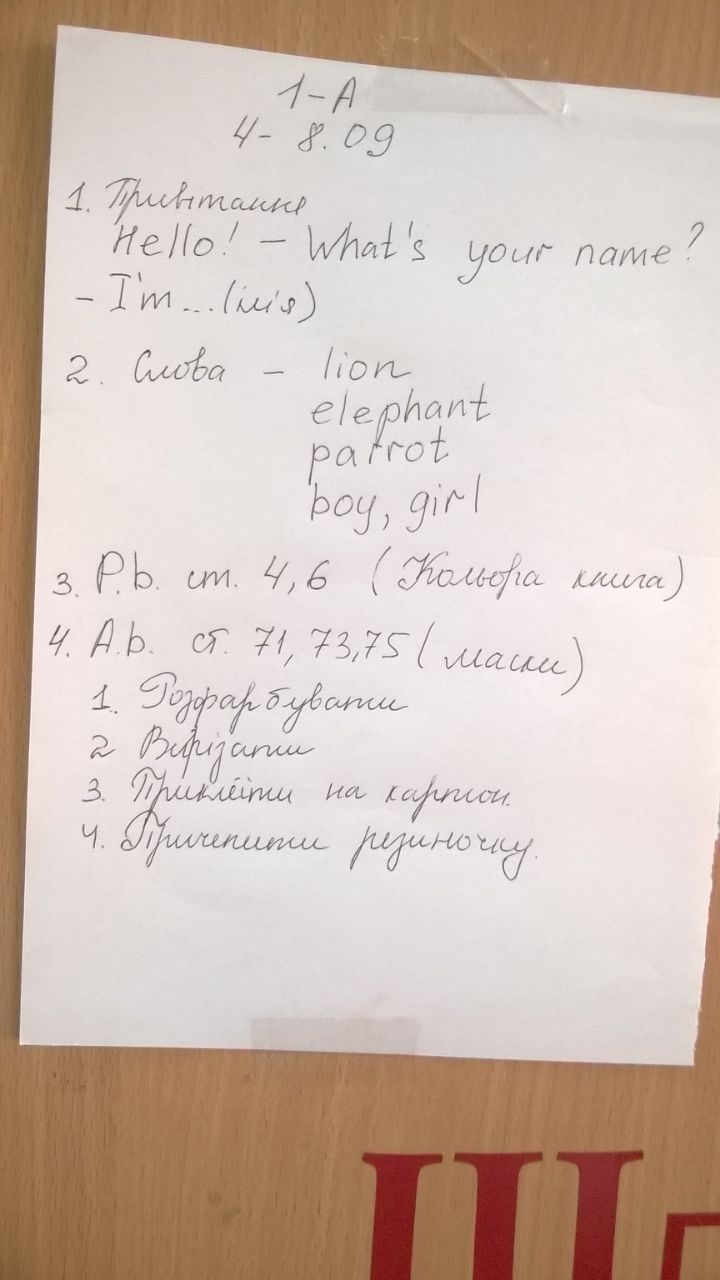 1-А
4- 8.09
1. Привітання
Hello! - What's your name?
- I'm... (ім'я)
2. Слова - lion
elephant
parrot
boy, girl
3. P.b. ст. 4,6 (Кольора книга)
4. A.b. ст. 71, 73,75 (маски)
1. Розфарбувати
2 Вирізати
3. Приклеїти на картон.
4. Причепити резиночку.
Ш